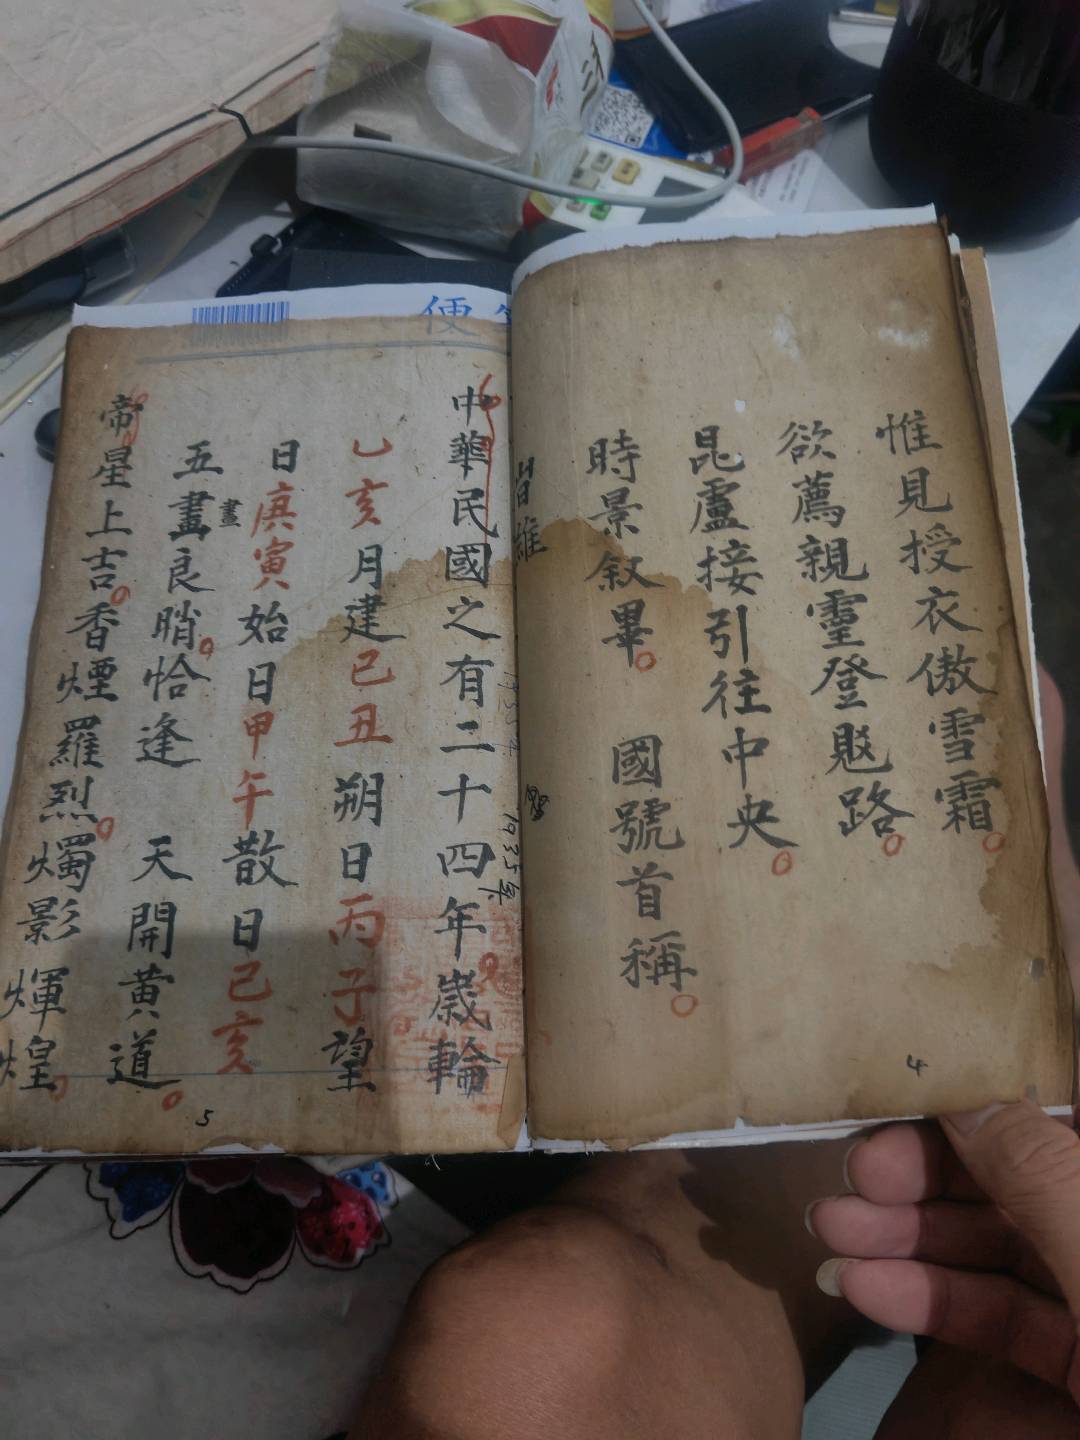 惟見授衣傲雪霜
欲薦親靈登𨓆路
昆盧接引往中央
時景叙畢 國號首稱
旹維
中華民國之有二十四年歲輪
乙亥月建己丑朔日丙子望
日庚寅始日甲午散日己亥
五晝良晭恰逢 天開黄道
晝
帝星上吉香煙羅烈燭影輝煌
1935年
4
5
便